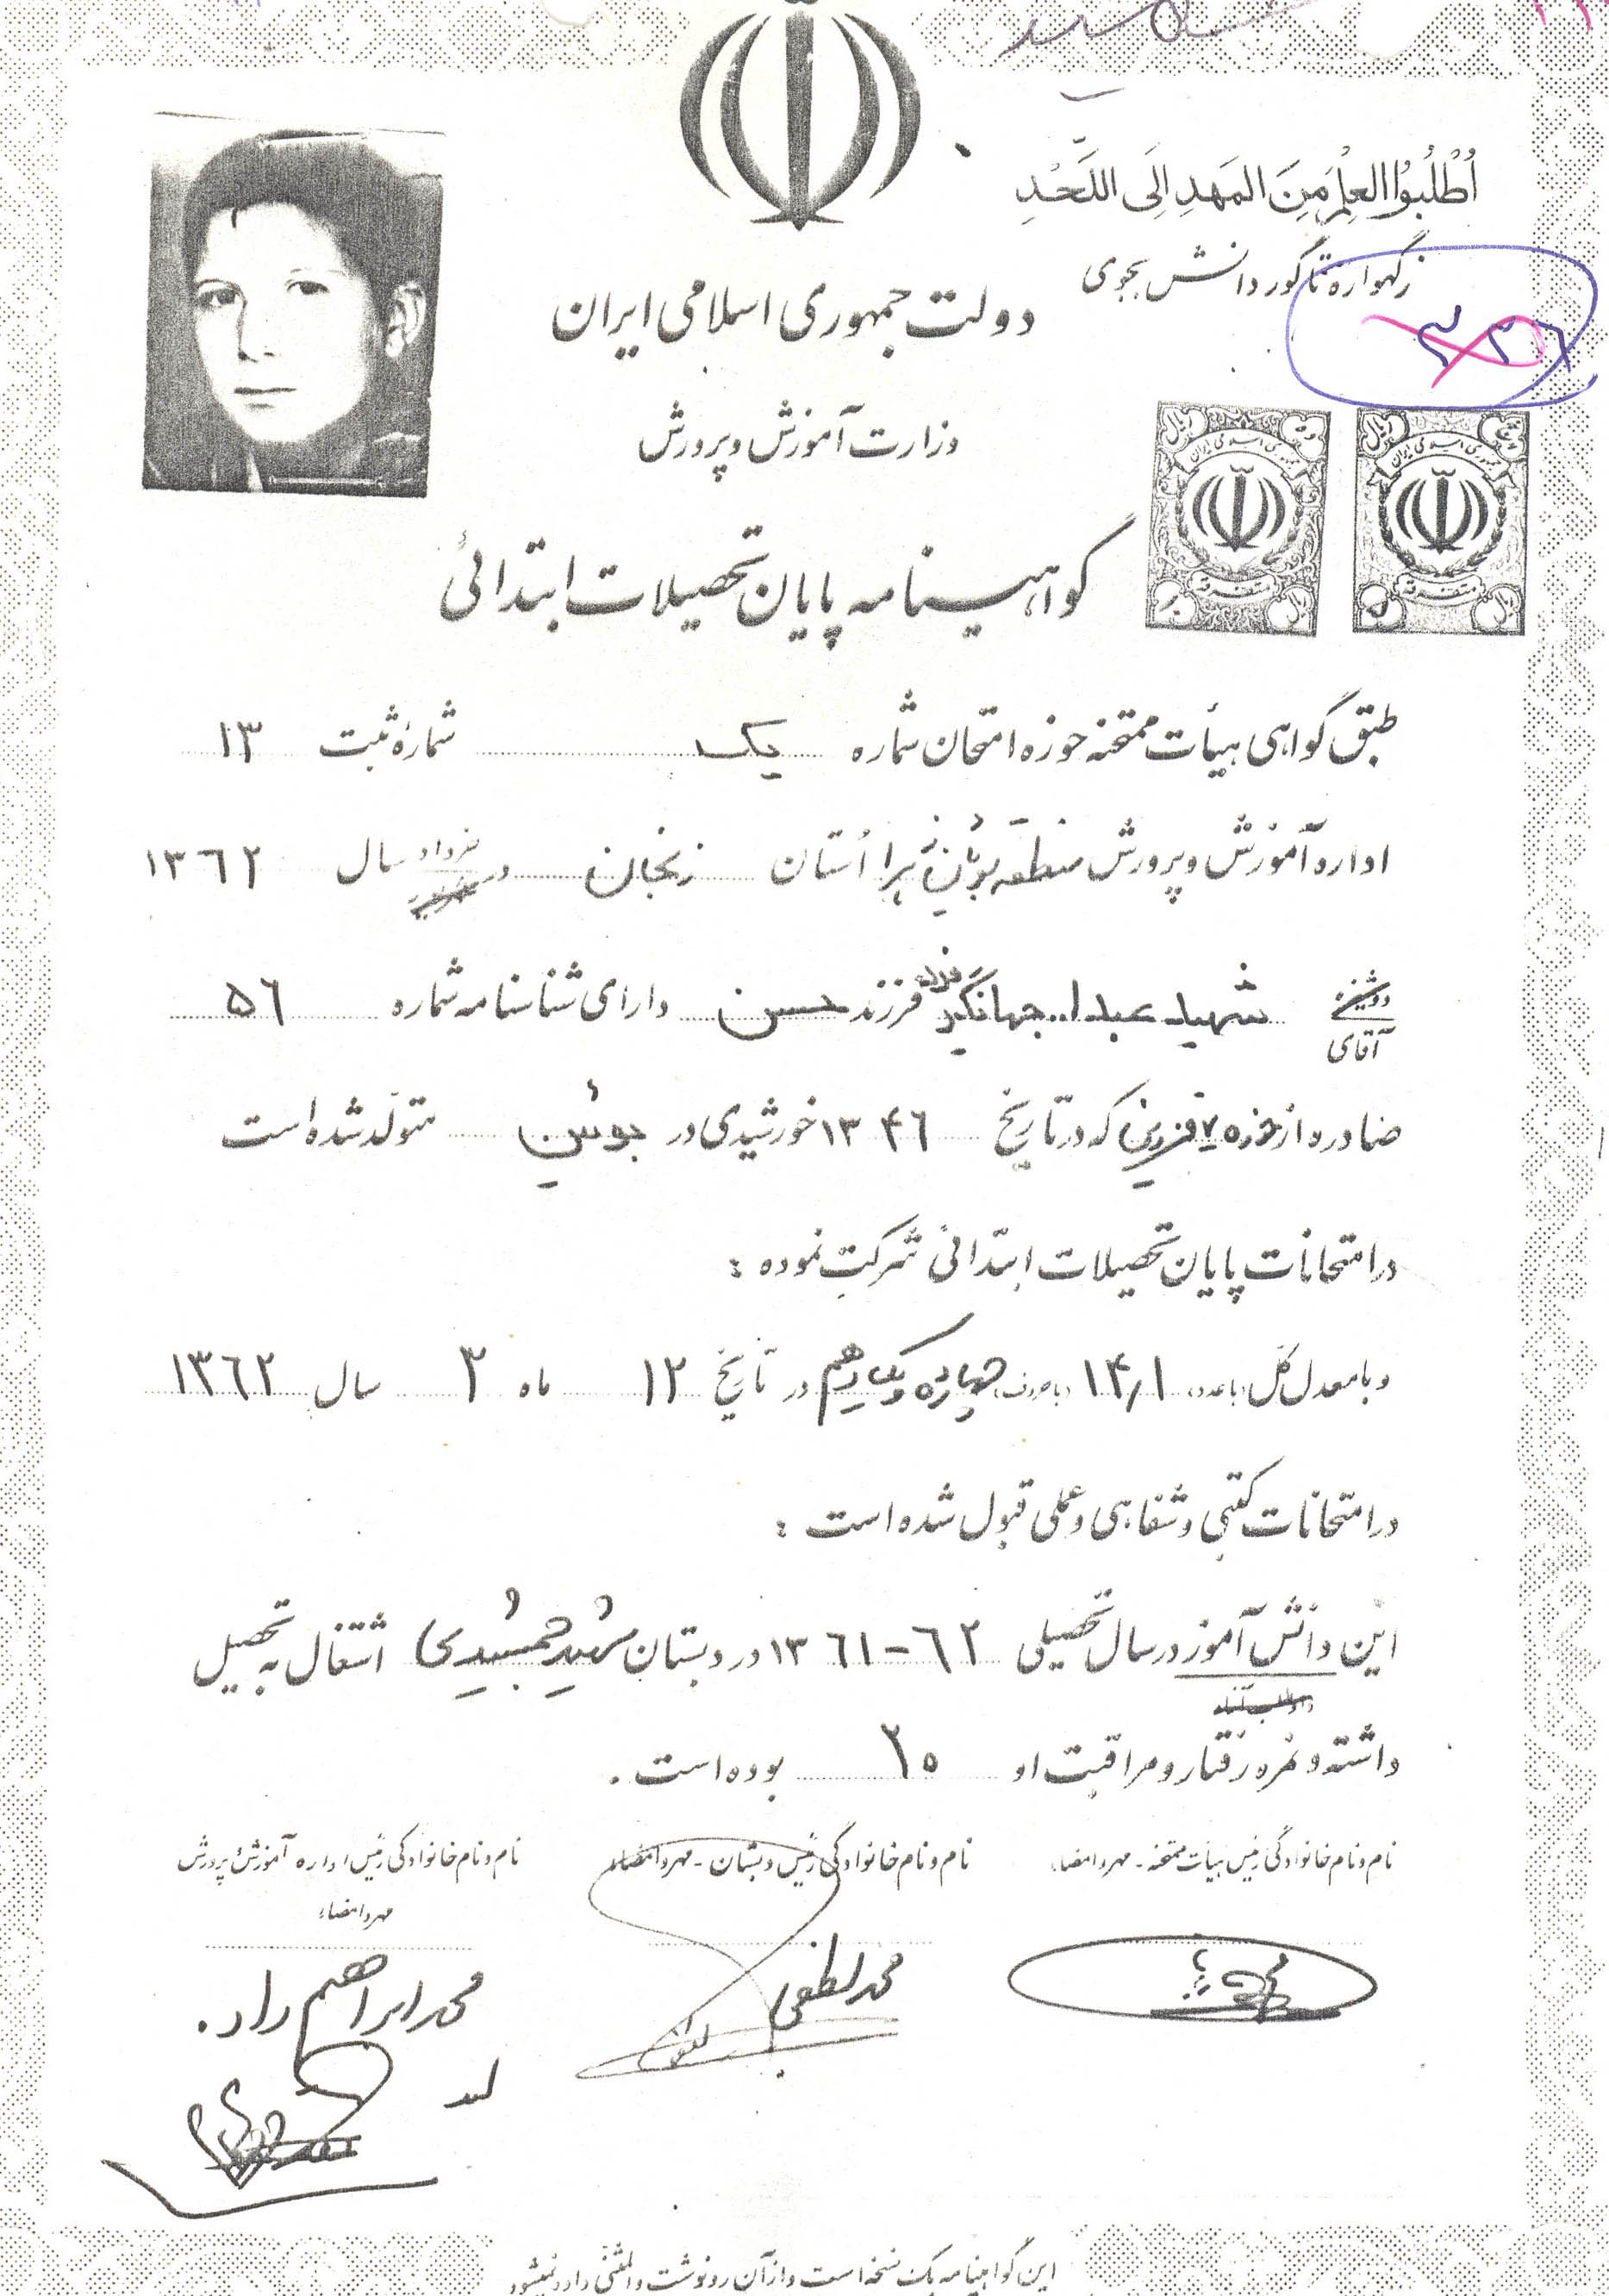 اُطْلُبُوا العِلْمَ مِنَ المَهدِ اِلَی اللَّحْدِ
زگهواره تا گور دانش بجوی
دولت جمهوری اسلامی ایران
وزارت آموزش و پرورش
گواهینامه پایان تحصیلات ابتدائی
طبق گواهی هیأت ممتحنه حوزه امتحان شماره یک شمارهٔ ثبت ۱۳
اداره آموزش و پرورش منطقه بوئین زهرا اُستان زنجان در خرداد سال ۱۳۶۲
دوشیزه
آقای شهید عبدا.. جهانگیر فرزند حسن دارای شناسنامه شماره ۵۶
صادره از حوزه ۷ قزوین که در تاریخ ۱۳۴۶ خورشیدی در بوئین متولد شده است
در امتحانات پایان تحصیلات ابتدائی شرکت نموده :
و با معدل کل (با عدد) ۱۴٫۱ (با حروف) چهارده و یک دهم در تاریخ ۱۲ ماه ۳ سال ۱۳۶۲
در امتحانات کتبی و شفاهی و عملی قبول شده است :
این دانش آموز در سال تحصیلی ۶۲-۱۳۶۱ در دبستان شهید جمشیدی اشتغال به تحصیل
داشته و نمره رفتار و مراقبت او ۲۰ بوده است .
نام و نام خانوادگی رئیس هیأت ممتحنه - مهر و امضاء
نام و نام خانوادگی رئیس دبستان - مهر و امضاء
نام و نام خانوادگی رئیس اداره آموزش و پرورش
مهر و امضاء
محمد لطفی
محمد ابراهیم راد.
این گواهینامه یک نسخه است و از آن رونوشت و المثنی داده نمیشود